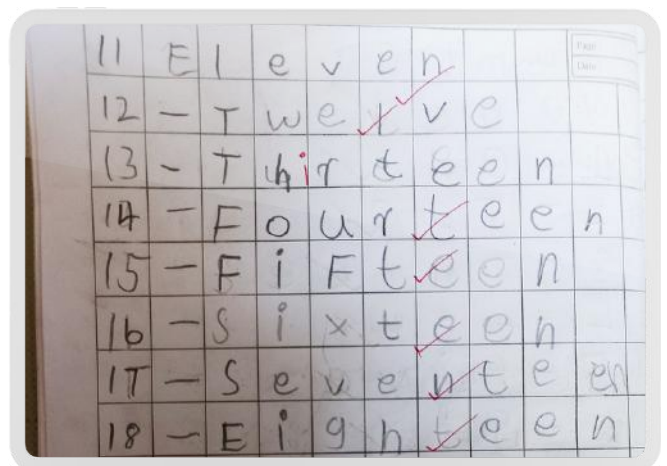 Page
Date
11 Eleven
12 - Twelve
13 - Thirteen
14 - Fourteen
15 - FiFteen
16 - Sixteen
17 - Seventeen
18 - Eighteen